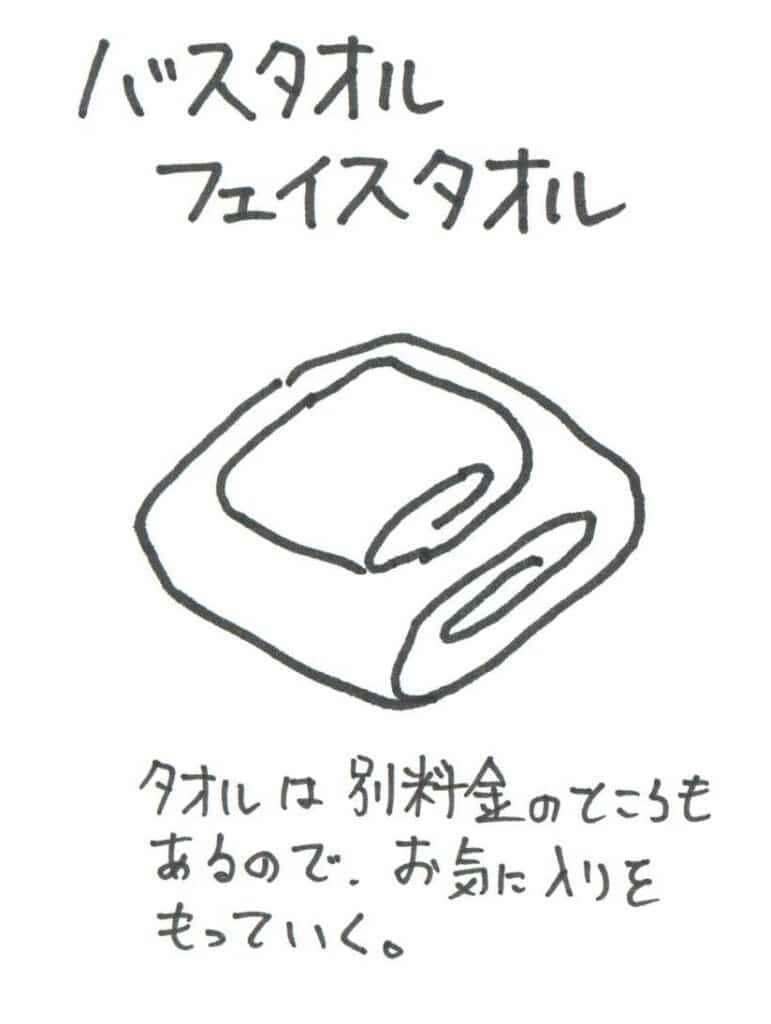 バスタオル
フェイスタオル
タオルは別料金のところも
あるので、お気に入りを
もっていく。